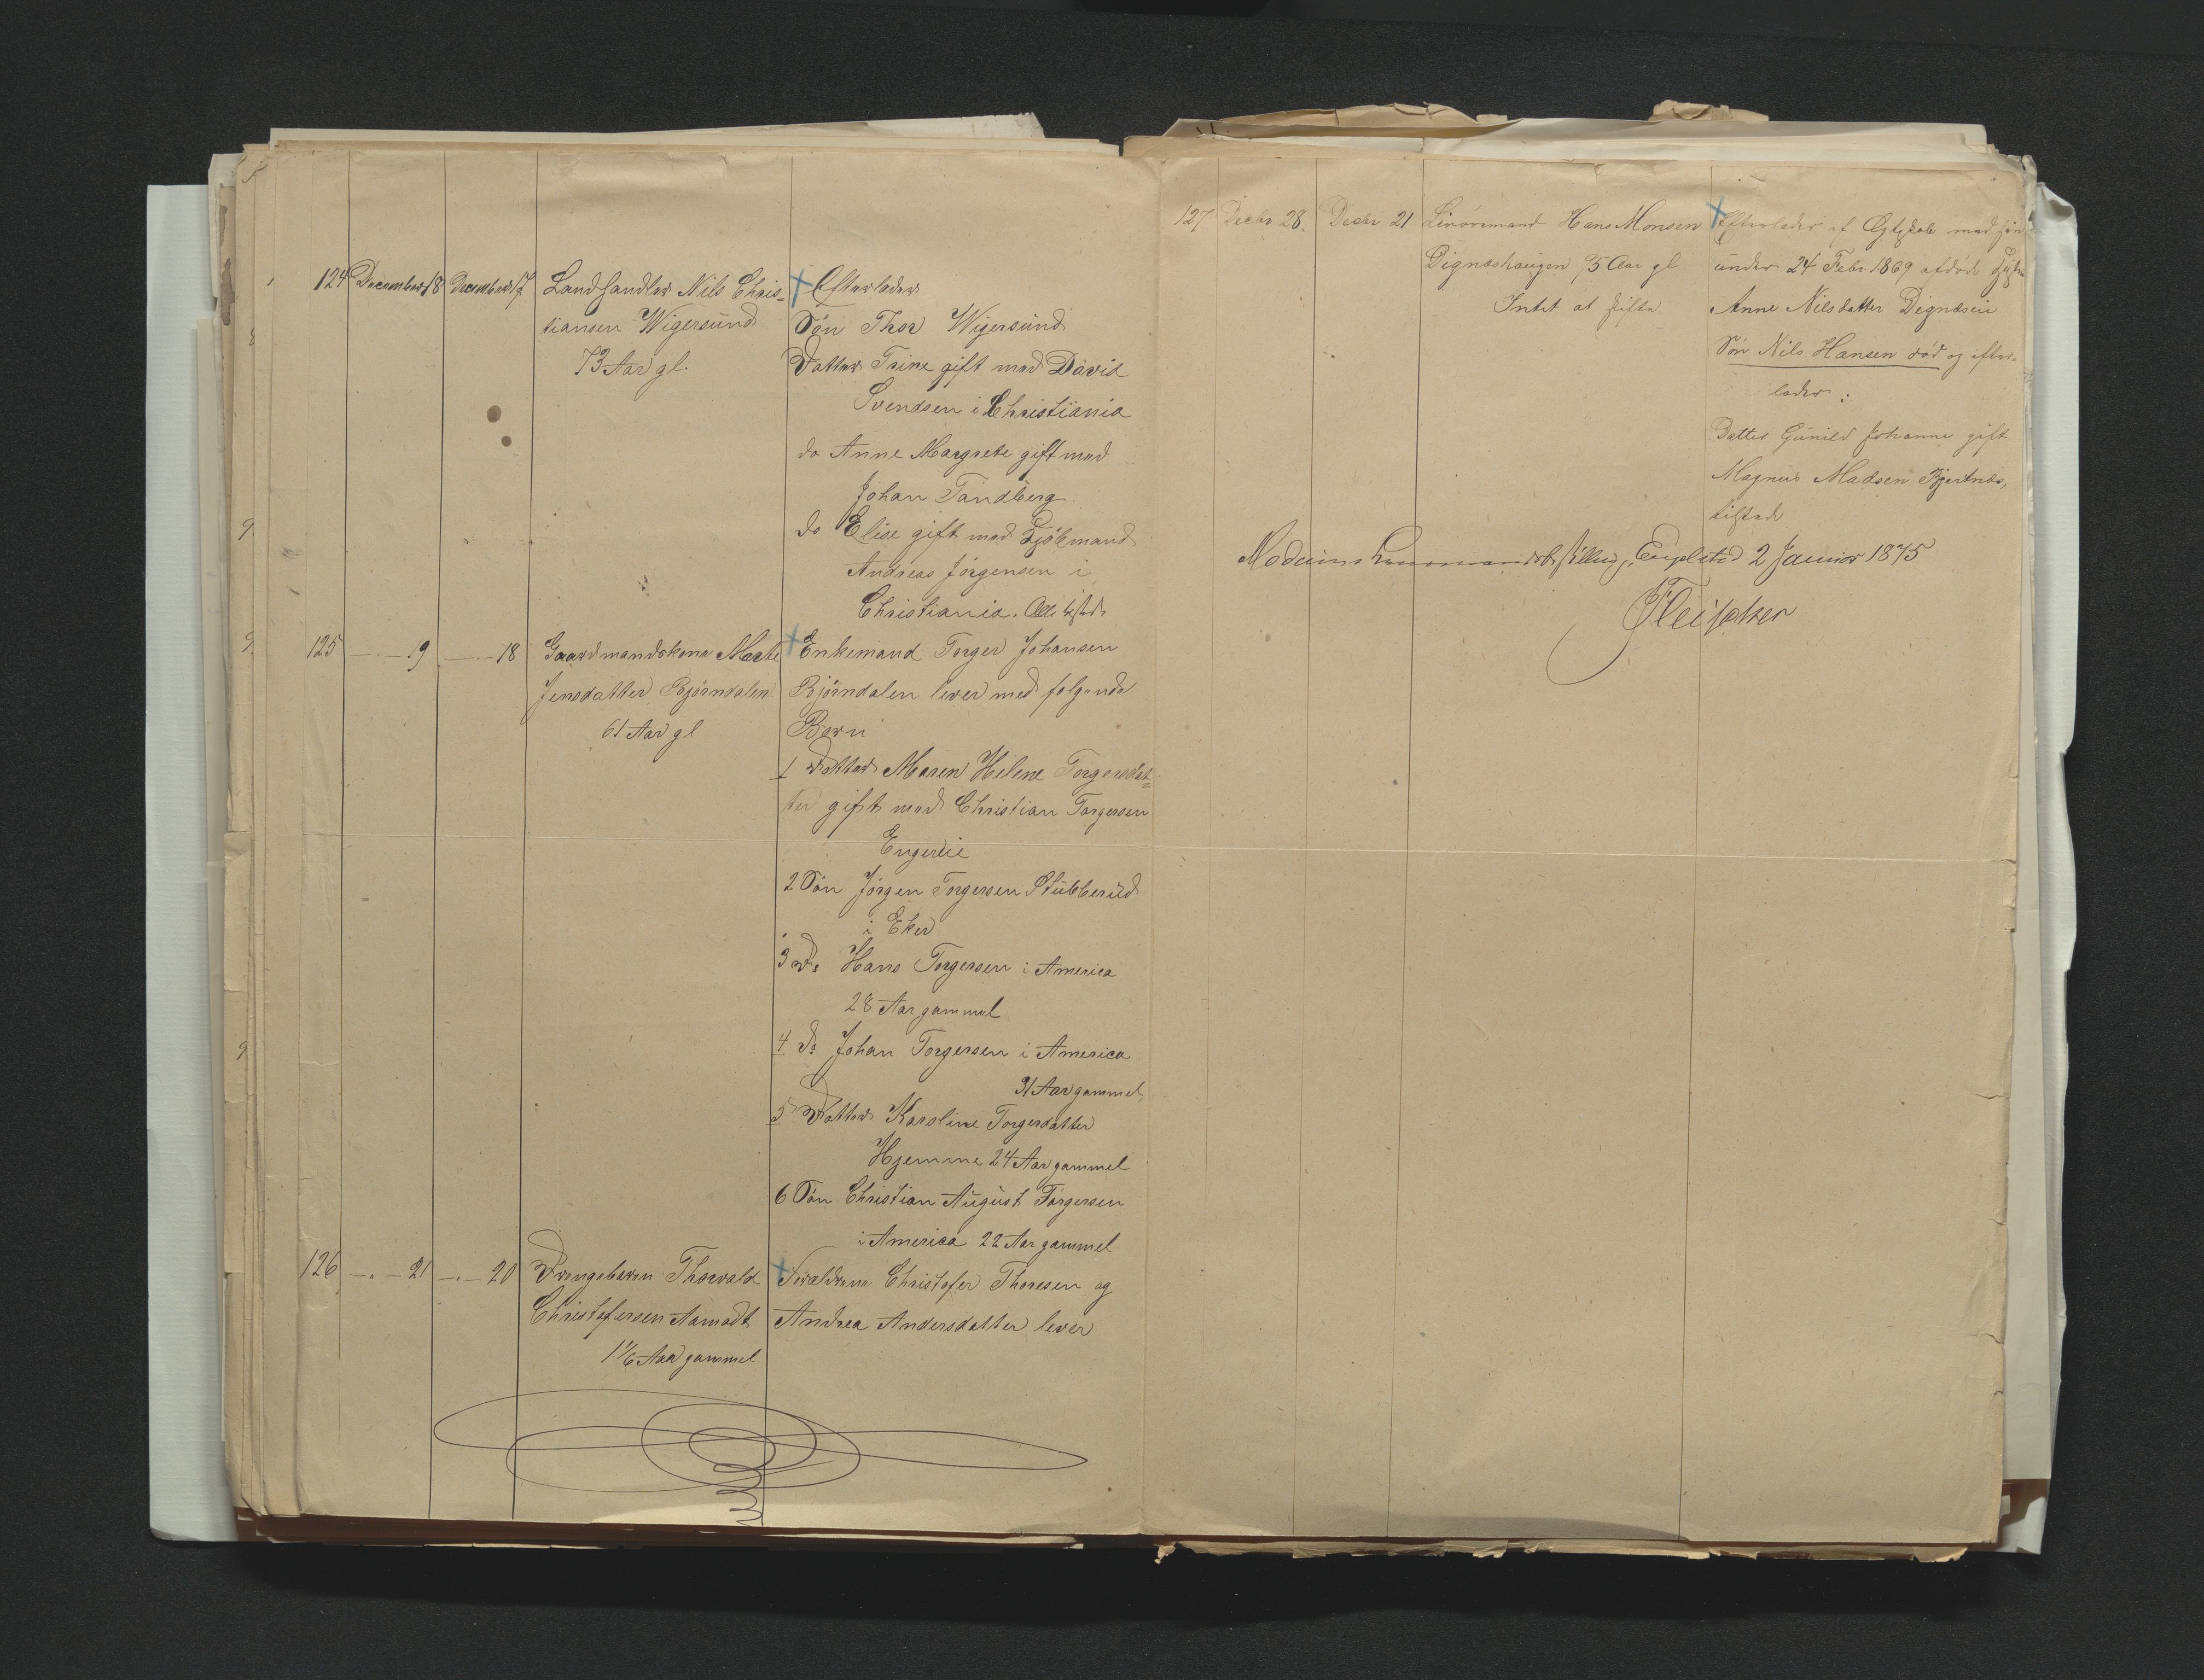 124 December 18 December 17 Landhandler Nils Chris-
tiansen Wigersund
73 Aar gl.
Efterlader
Søn Thor Wigersund
Datter Trine gift med David
Svendsen i Christiania
do Anne Margrete gift med
Johan Tandberg
do Elise gift med
Andreas Jörgensen i
Christiania. Alle
125 19 18 Gaardmandskone Marte
Jensdatter Bjørndalen
61 Aar gl
Enkemand Torger Johansen
Bjørndalen lever med følgende
Børn
1 Datter Maren Helene Torgersdat=
ter gift med Christian Torgersen
Engereie
2 Søn Jörgen Torgersen Stubberud
i Eker
3 do Hans Torgersen i America
28 Aar gammel
4 do Johan Torgersen i America
31 Aar gammel
5 Datter Karoline Torgersdatter
Hjemme 24 Aar gammel
6 Søn Christian August Torgersen
i America 22 Aar gammel
126 21 20 Drengebarn Thorvald
Christofersen Aamodt
1 1/6 Aar gammel
Forældrene Christofer Thoresen og
Andrea Andersdatter lever
127 Decbr 28. Decbr 21 Hans Monsen
Dignæshaugen 75 Aar gl
Intet at skifte
Efterlader af Ægteskab med sin
under 24 Febr. 1869 afdøde
Anne Nilsdatter Dignæseie
Søn Nils Hansen død og efter-
lader:
Datter Gunild Johanne gift
Magnus Madsen
tilstede
Modums Lensmandsbestilling, Engelstad 2 Januar 1875
Fleischer